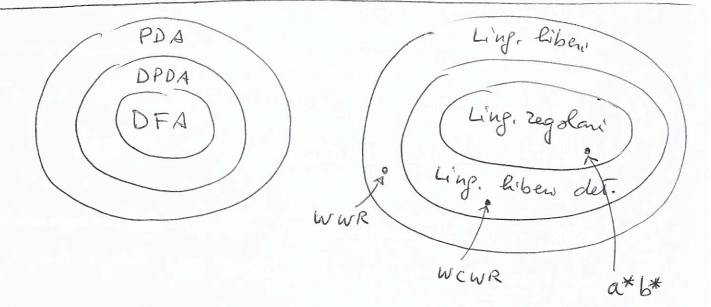 PDA
DPDA
DFA
Ling. liberi
Ling. regolari
Ling. liberi det.
WWR
WCWR
a*b*